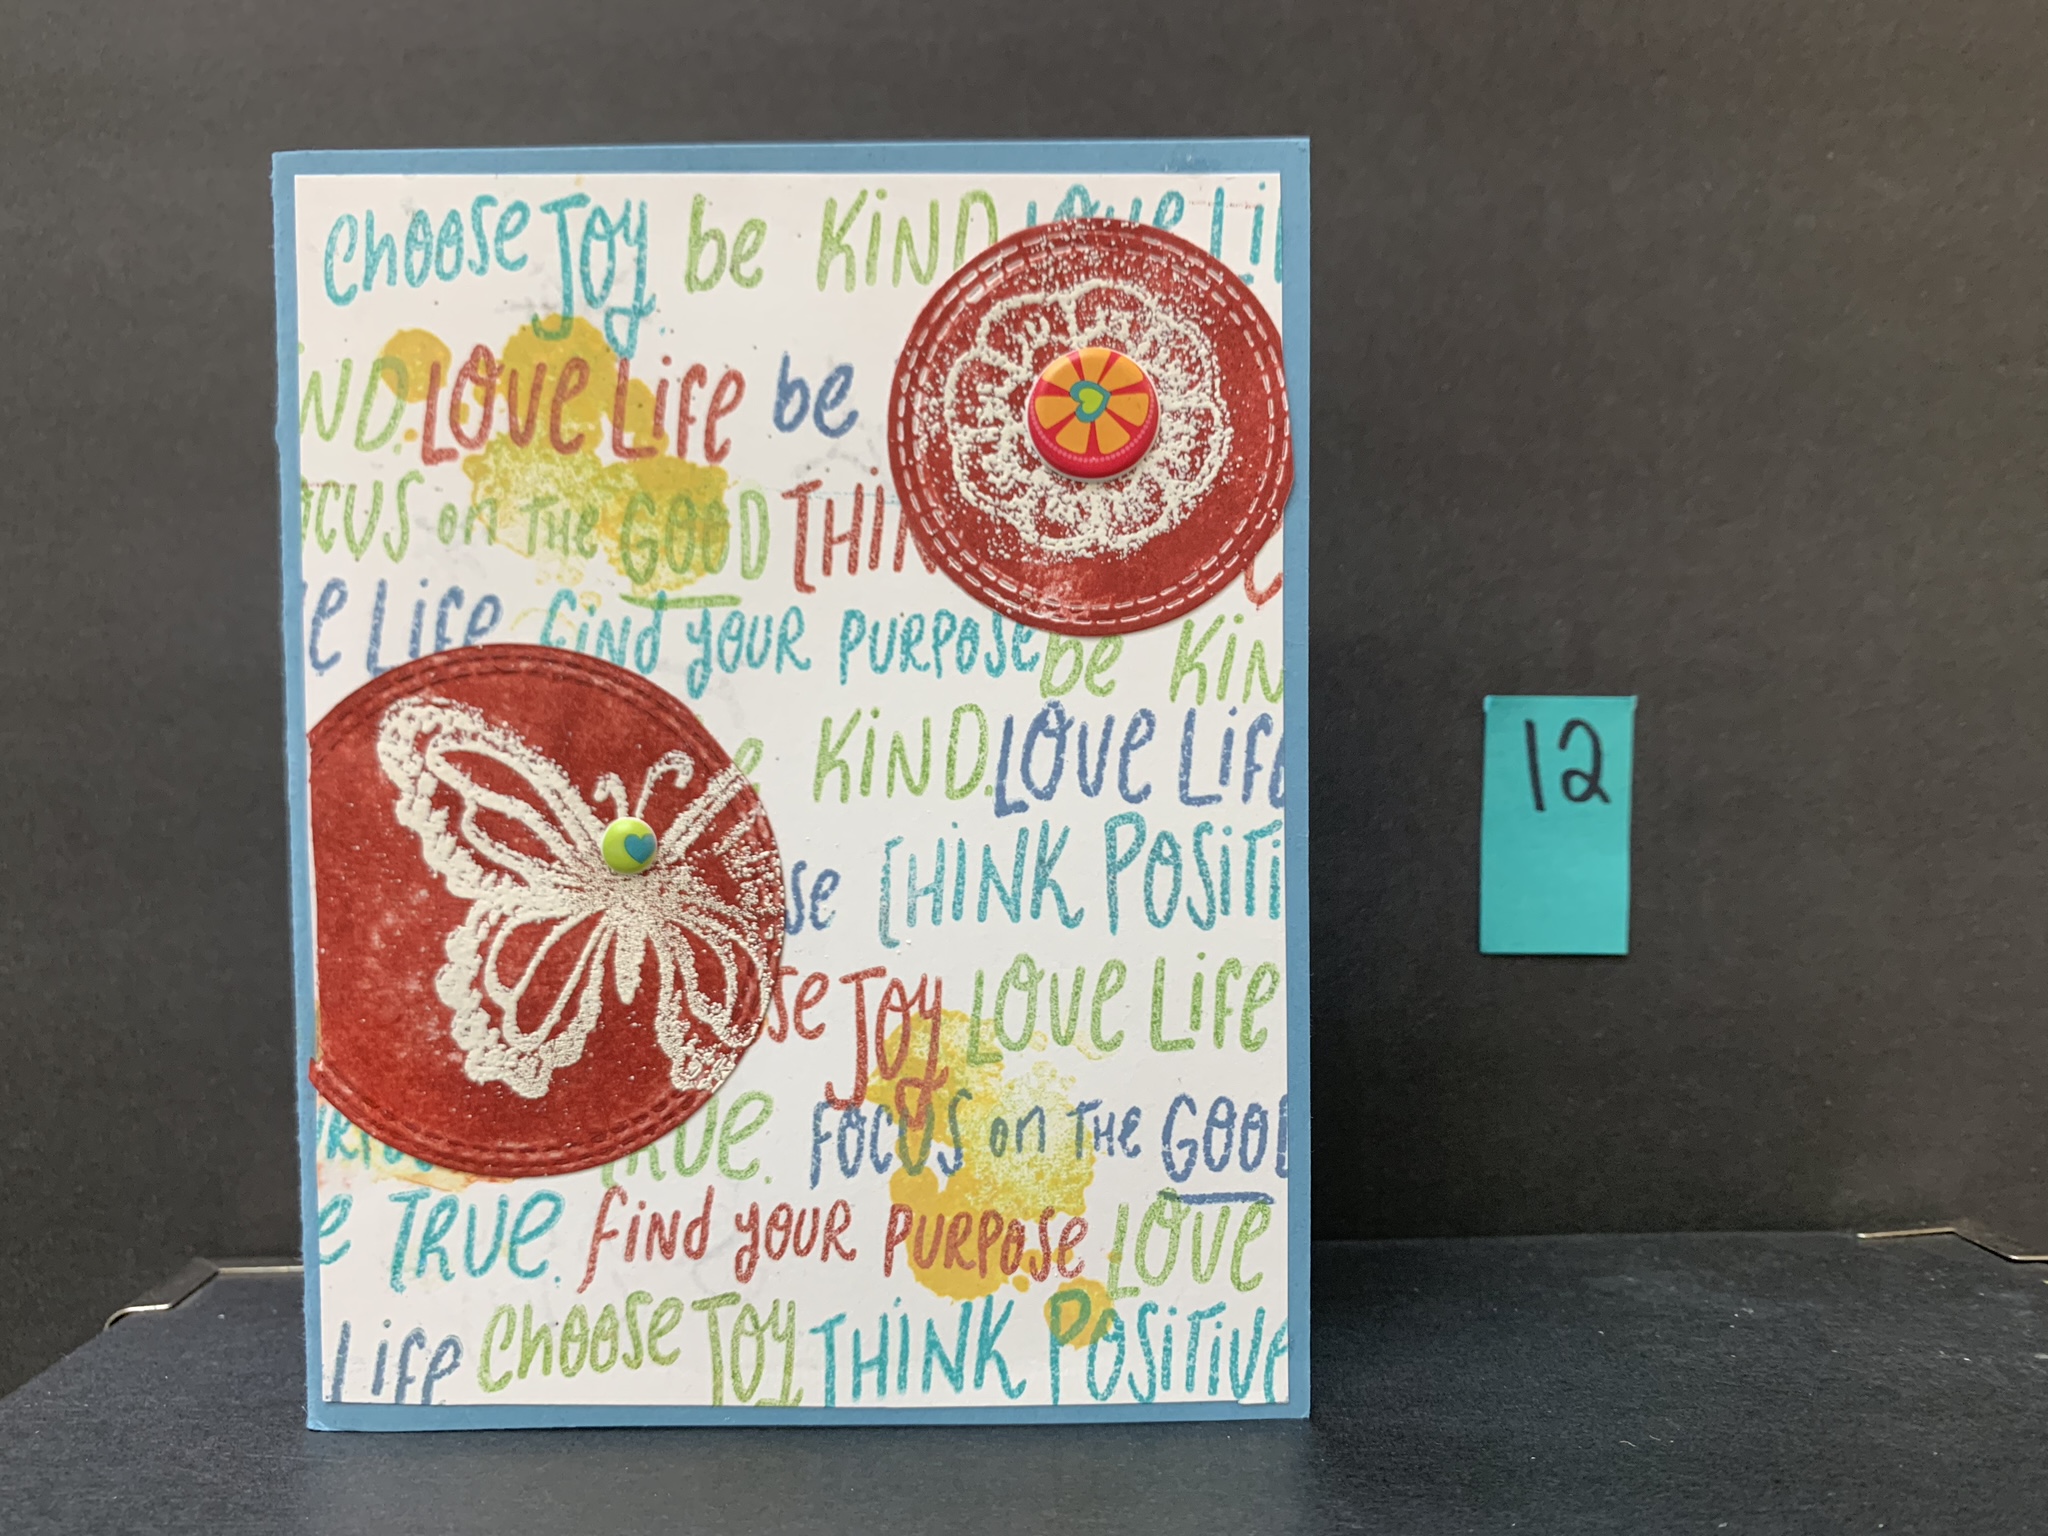 choose Joy be KIND LOVE LI
ND. LOVE LIFE be
OCUS on THE GOOD THIN
E LIFE find your purpose be KIN
e KIND. LOVE LIFE
se THINK POSITI
se Joy LOVE LIFE
TRUE. FOCUS on THE GOOD
e TRUE. find your purpose LOVE
LIFE choose Joy THINK POSITIVE
12